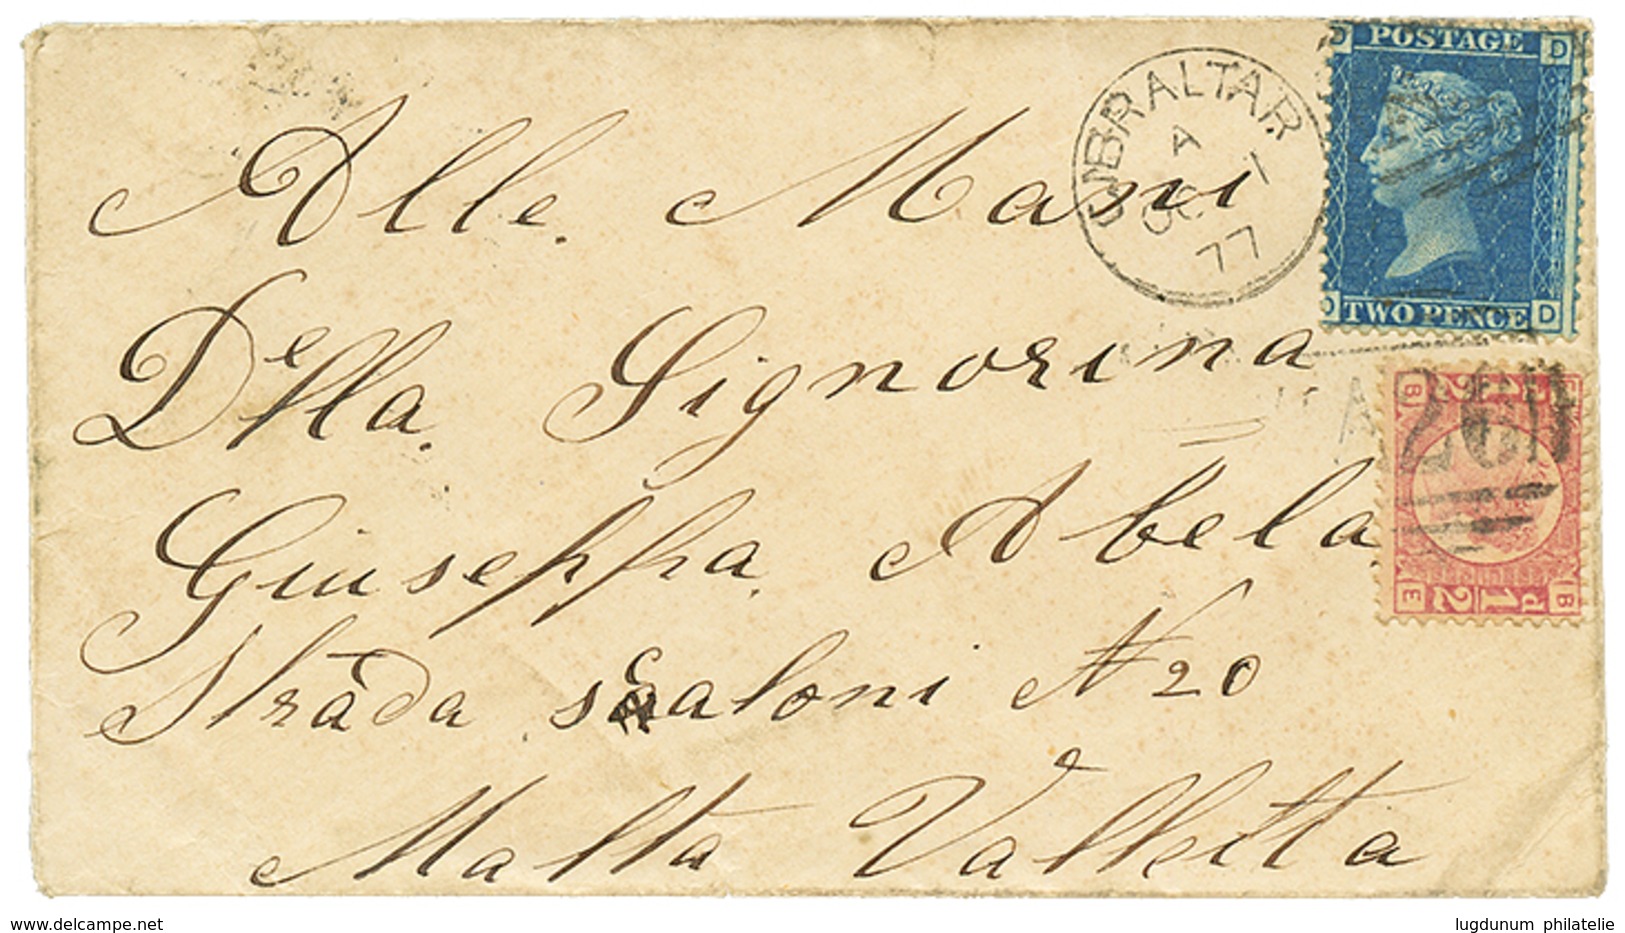 GIBRALTAR
A
OC 1
77
D D
POSTAGE
TWO PENCE
D D
A26
B
1/2 d
E B
Alle. Mani
Della. Signorina
Giuseppa. Abela
Strada scaloni N 20
Malta Valletta
www.delcampe.net
lugdunum philatelie